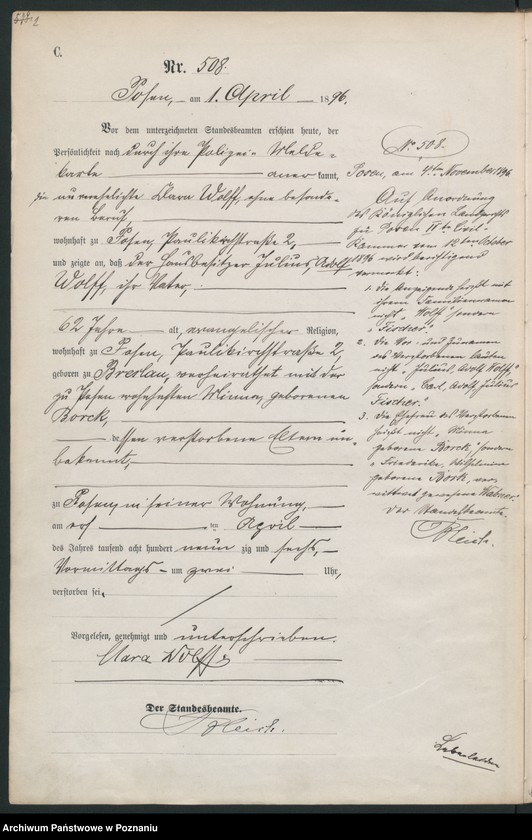 C.
Nr. 508.
Posen, am 1. April 1896.
Vor dem unterzeichneten Standesbeamten erschien heute, der
Persönlichkeit nach durch ihre Polizei-Melde-
karte anerkannt,
die unverehelichte Clara Wolff, ohne besonde-
ren Beruf,
wohnhaft zu Posen, Paulikirchstraße 2,
und zeigte an, daß der Hausbesitzer Julius Adolf
Wolff, ihr Vater,
62 Jahre alt, evangelischer Religion,
wohnhaft zu Posen, Paulikirchstraße 2,
geboren zu Breslau, verheirathet mit der
zu Posen wohnhaften Minna, geborenen
Borck,
dessen verstorbene Eltern un-
bekannt,
zu Posen, in seiner Wohnung,
am ersten April
des Jahres tausend acht hundert neunzig und sechs,
Vormittags um zwei Uhr,
verstorben sei.
Vorgelesen, genehmigt und unterschrieben.
Clara Wolff
Der Standesbeamte.
No 508.
Posen, am November 1896
Auf Anordnung
des Königlichen Landgerichts
zu Posen IIte Civil-
Kammer vom October
1896 wird berichtigend
vermerkt:
1. die Anzeigende heißt mit
ihrem Familiennamen
nicht "Wolff" sondern
"Fischer".
2. Die Vor- und Zunamen
des Verstorbenen lauten
nicht "Julius Adolf Wolff,"
sondern "Carl Adolf Julius
Fischer."
3. Die Ehefrau des Verstorbenen
heißt nicht "Minna
geborene Borck," sondern
"Friederike Wilhelmine
geborene Borck,
Der Standesbeamte.
Archiwum Państwowe w Poznaniu